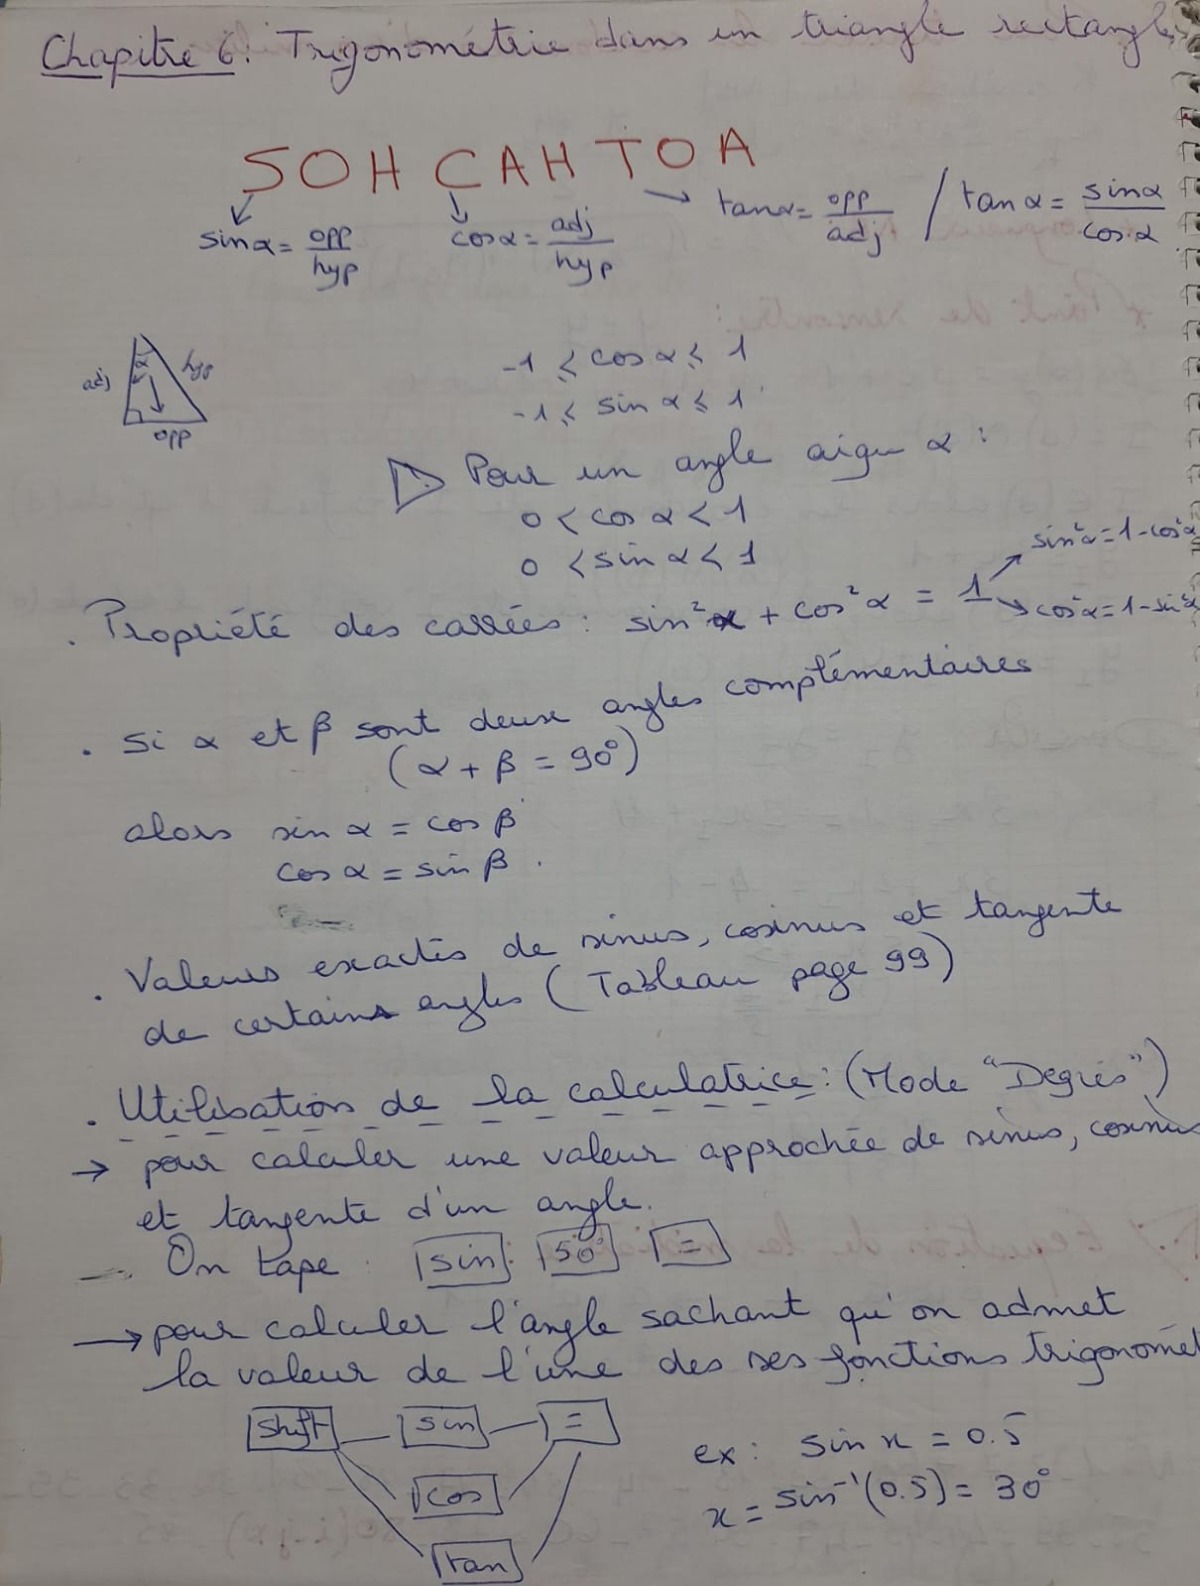 Chapitre 6: Trigonométrie dans un triangle rectangle
SOH CAH TOA
sin α = opp/hyp
cos α = adj/hyp
tan α = opp/adj / tan α = sin α/cos α
adj
α
hyp
opp
-1 ⩽ cos α ⩽ 1
-1 ⩽ sin α ⩽ 1
Pour un angle aigu α :
0 < cos α < 1
0 < sin α < 1
. Propriété des carrées : sin²α + cos²α = 1
sin²α = 1-cos²α
cos²α = 1-sin²α
. Si α et β sont deux angles complémentaires
(α + β = 90°)
alors sin α = cos β
cos α = sin β .
. Valeurs exactes de sinus, cosinus et tangente
de certains angles (Tableau page 99)
. Utilisation de la calculatrice : (Mode "Degrés")
→ pour calculer une valeur approchée de sinus, cosinus
et tangente d'un angle.
On tape : sin 50° =
→ pour calculer l'angle sachant qu'on admet
la valeur de l'une des ses fonctions trigonomét
shift sin =
cos
tan
ex: sin x = 0.5
x = sin⁻¹(0.5) = 30°